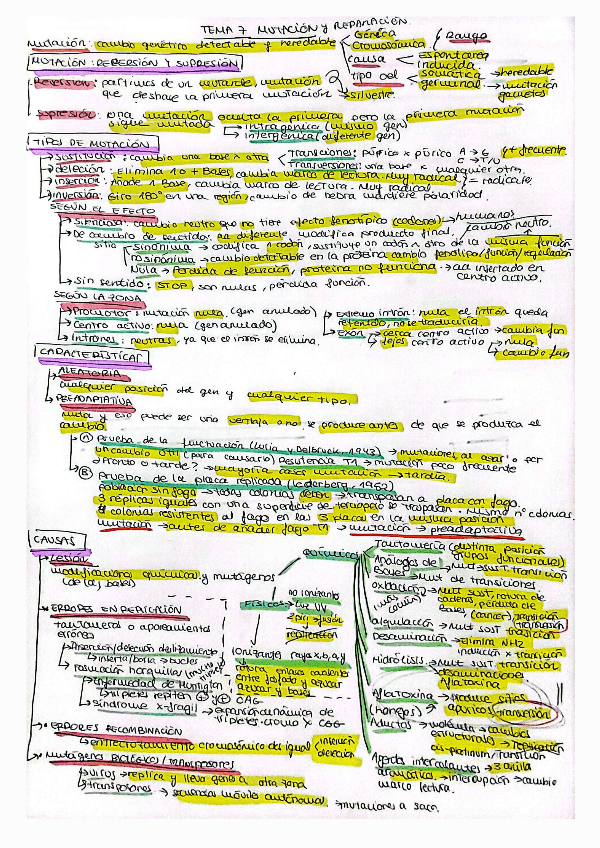 TEMA 7 MUTACIÓN Y REPARACIÓN.
Mutación: cambio genético detectable y heredable
Génica
Cromosómica
Rango
causa
espontánea
inducida.
tipo cel
somática
germinal
heredable
mutación
gametos
MUTACIÓN: REVERSIÓN Y SUPRESIÓN
Reversión: partimos de un mutante, mutación 2
que deshace la primera mutación
silvestre.
supresión: una mutación oculta la primera pero la primera mutación
sigue mutada
intragénica (mismo gen)
intergénica (diferente gen)
TIPOS DE MUTACIÓN
Sustitución: cambia una base x otra
Transiciones: púrico x púrico A → G
C → T/U
+ frecuente
Transversiones: una base x cualquier otra.
deleción: Elimina 1 o + Bases, cambia marco de lectura. Muy radical
inserción: Añade 1 Base, cambia marco de lectura. Muy radical.
= radicales
inversión: Giro 180° en una región, cambio de hebra mantiene polaridad.
SEGÚN EL EFECTO
Silenciosa: cambio neutro que no tiene efecto fenotípico (codones)
De cambio de sentido: aa diferente, modifica producto final.
cambio neutro.
Sinónima → codifica 1 codón, sustituye un codón x otro de la misma función
no sinónima → cambio detectable en la proteína cambio fenotipo/función/regulación
Nula → Pérdida de función, proteína no funciona → aa insertado en
centro activo.
Sin sentido: STOP, son nulas, pérdida función.
SEGÚN LA ZONA
Promotor: mutación nula. (gen anulado)
Centro activo: nula (gen anulado)
Intrones: neutras, ya que el intrón se elimina.
Extremo intrón: nula el intrón queda
retenido, no se traduciría
Exón
cerca centro activo → cambia fun
lejos centro activo
nula
cambio fun
CARACTERÍSTICAS
ALEATORIA
cualquier posición del gen y cualquier tipo.
PREADAPTATIVA
muta y eso puede ser una ventaja o no. se produce antes de que se produzca el
cambio.
A Prueba de la fluctuación (Luria y Delbruck, 1943) → mutaciones al azar o por
un cambio útil (para causarlo) Resistencia T1 → mutación poco frecuente
Pronto o tarde? → mayoría casos mutación → tardía.
B Prueba de la placa replicada (Lederberg, 1952)
Población sin fago → todas colonias crecen → transpasan a placa con fago.
3 réplicas iguales con una superficie de terciopelo se traspasan. mismo nº colonias.
4 colonias resistentes al fago en las 3 placas en la misma posición
mutación → antes de añadir fago T1 → mutación → preadaptativa
CAUSAS
Lesión
modificaciones químicas y mutágenos
(de las bases)
ERRORES EN REPLICACIÓN
tautómeros o apareamientos
erróneos
Inserción/deleción deslizamiento
inserta/borra → bucles
Formación horquillas
Enfermedad de Huntington
tripletes repiten CAG
síndrome x-fragil → expansión dinámica de
tripletes-cromo X CGG
ERRORES RECOMBINACIÓN
entrecruzamiento cromosómico desigual
inserción
deleción
Mutágenos BIOLÓGICO/TRANSPOSONES
virus → replica y lleva gen a otra zona
transposones → secuencias móviles autónomas → mutaciones a saco.
Físicos
no ionizante
Luz UV
replicación
Ionizante
rayos x, b, a, y
rotura enlaces covalentes
entre fosfato y azúcar
azúcar y base
Químicos
Tautomería (distinta posición
grupos funcionales)
mut sust. transición
Análogos de
Bases → mut de transiciones
oxidación → mut sust, rotura de
cadenas, pérdida de
bases (cáncer), transición
transversión
alquilación → mut sust transición
Desaminación → elimina NH2
inducción x transición
Hidrólisis → mut sust transición
desaminaciones
Aflatoxina → produce sitios
(hongos) apúricos
transversión
Aductos → molécula → cambios
estructurales → replicación
cis-platinum/transición
Agentes intercalantes → 3 anillo
aromático → interrupción → cambio
marco lectura.